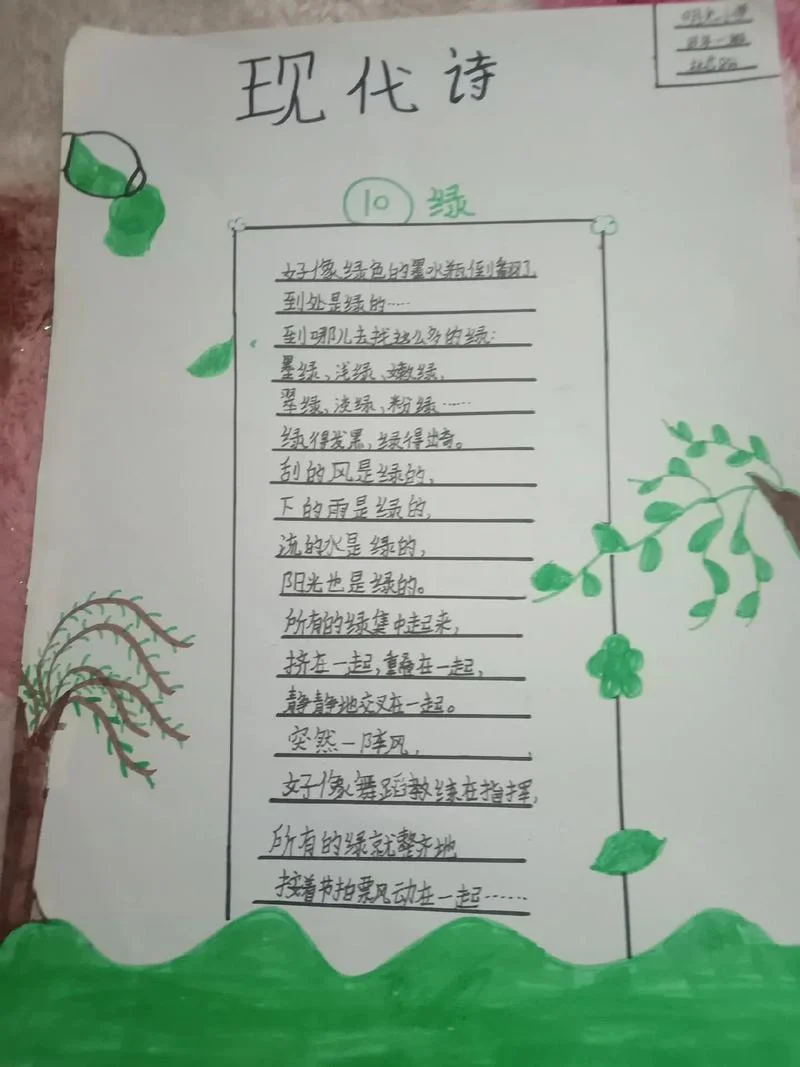 现代诗
阳光小学
四年一班
⑩ 绿
好像绿色的墨水瓶倒翻了,
到处是绿的……
到哪儿去找这么多的绿:
墨绿、浅绿、嫩绿、
翠绿、淡绿、粉绿……
绿得发黑,绿得出奇。
刮的风是绿的,
下的雨是绿的,
流的水是绿的,
阳光也是绿的。
所有的绿集中起来,
挤在一起,重叠在一起,
静静地交叉在一起。
突然一阵风,
好像舞蹈教练在指挥,
所有的绿就整齐地
按着节拍票风动在一起……